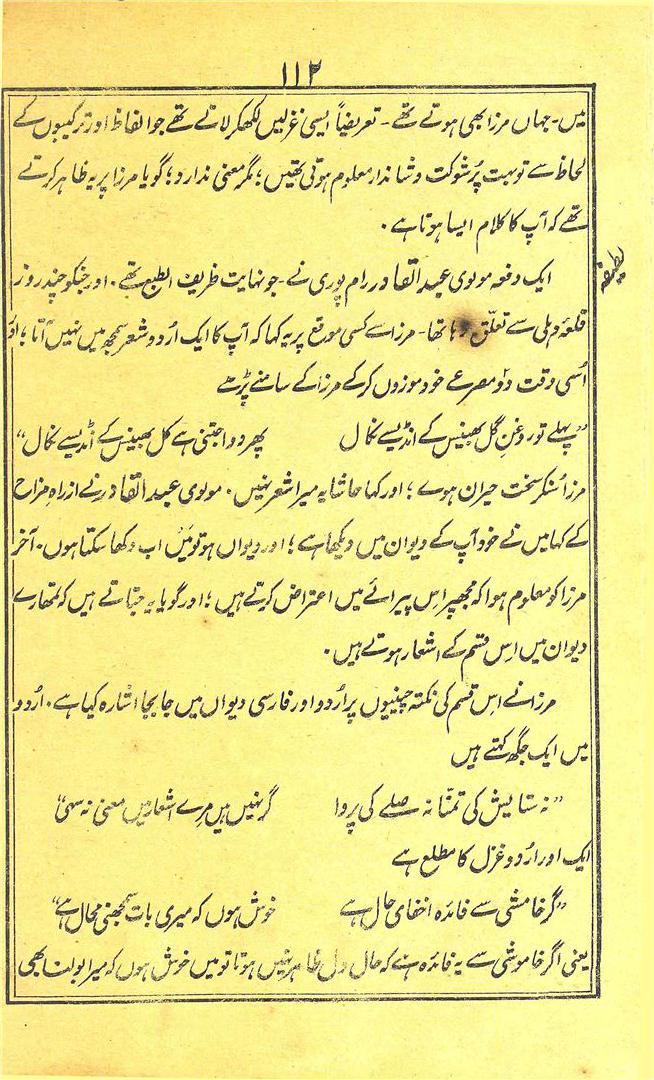 ۱۱۲
میں۔ جہاں مرزا بھی ہوتے تھے۔ تعریضاً ایسی غزلیں لکھکر لاتے تھے جو الفاظ اور ترکیبوں کے
لحاظ سے تو بہت پُرشوکت و شاندار معلوم ہوتی تھیں؛ مگر معنی ندارد؛ گویا مرزا پر یہ ظاہر کرتے
تھے کہ آپ کا کلام ایسا ہوتا ہے۔
لطیفہ
ایک دفعہ مولوی عبد القادر رام پوری نے۔ جو نہایت ظریف الطبع تھے۔ اور جنکو چند روز
قلعۂ دہلی سے تعلّق رہا تھا۔ مرزا سے کسی موقع پر یہ کہا کہ آپ کا ایک اُردو شعر سمجھ میں نہیں آتا؛ اور
اُسی وقت دو مصرعے خود موزوں کر کے مرزا کے سامنے پڑھے
”پہلے تو روغنِ گُل بھینس کے انڈے سے نکال پھر دوا جتنی ہے کُل بھینس کے انڈے سے نکال“
مرزا سُنکر سخت حیران ہوے؛ اور کہا حاشا یہ میرا شعر نہیں۔ مولوی عبد القادر نے از راہِ مزاح
کے کہا میں نے خود آپ کے دیوان میں دیکھا ہے؛ اور دیوان ہو تو مَیں اب دکھا سکتا ہوں۔ آخر
مرزا کو معلوم ہوا کہ مجھپر اِس پیرائے میں اعتراض کرتے ہیں؛ اور گویا یہ جتاتے ہیں کہ تمھارے
دیوان میں اِس قسم کے اشعار ہوتے ہیں۔
مرزا نے اِس قسم کی نکتہ چینیوں پر اُردو اور فارسی دیوان میں جا بجا اشارہ کیا ہے۔ اُردو
میں ایک جگھ کہتے ہیں
”نہ ستایش کی تمنّا نہ صلے کی پروا گر نہیں ہیں مرے اشعار میں معنی نہ سہی“
ایک اور اُردو غزل کا مطلع ہے
”گر خامشی سے فائدہ اخفای حال ہے خوش ہوں کہ میری بات سمجھنی محال ہے“
یعنی اگر خاموشی سے یہ فائدہ ہے کہ حالِ دل ظاہر نہیں ہوتا تو میں خوش ہوں کہ میرا بولنا بھی